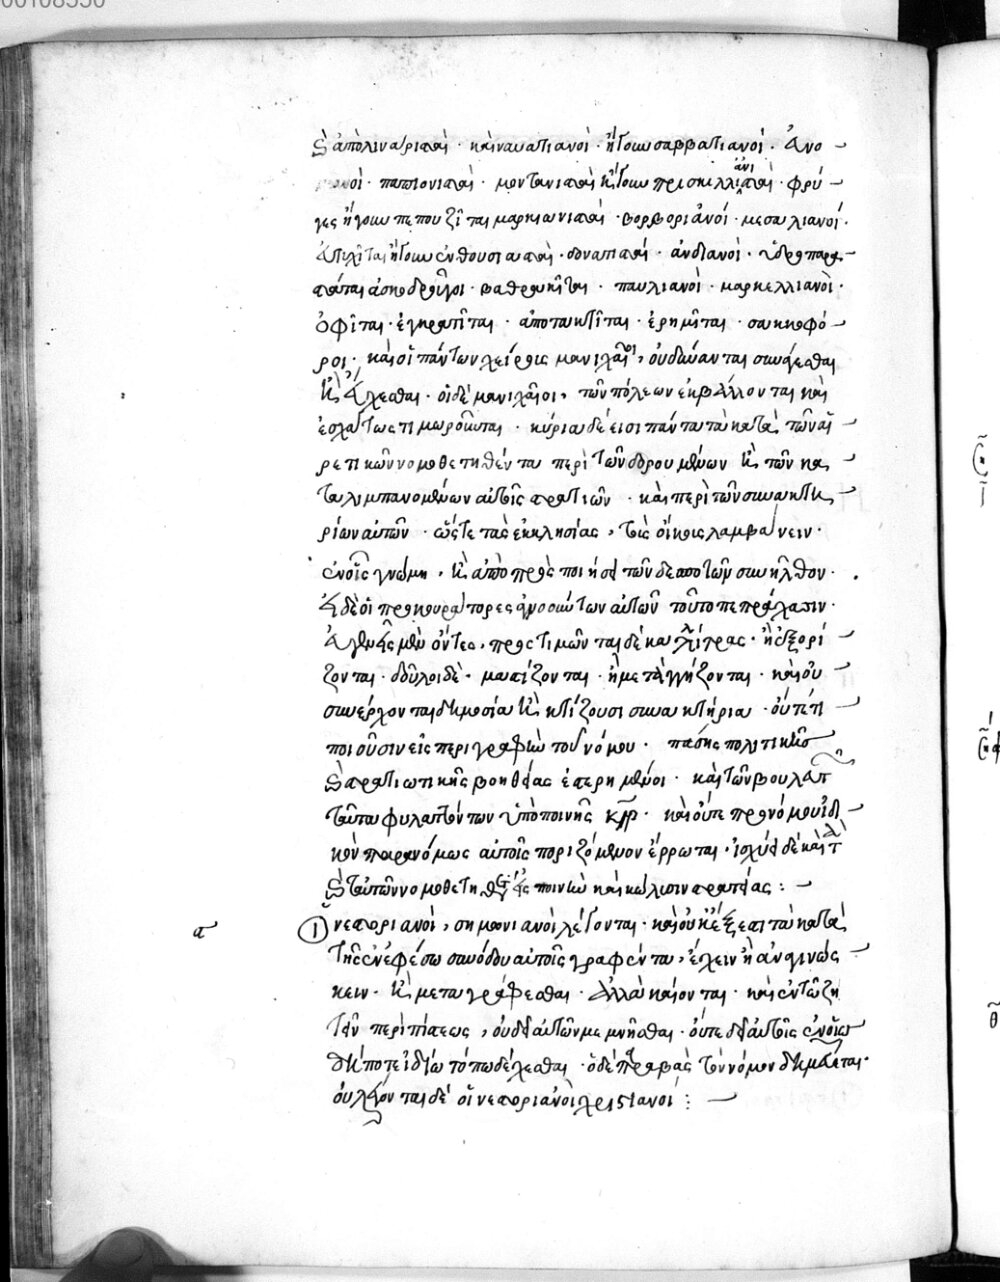 καὶ ἀπολιναρισταὶ · καὶ ναυατιανοὶ · ἤγουν σαββατιανοί · ἀνο
μιανοὶ · παπιονισταὶ · μοντανισταὶ ἤγουν πρισκιλλιανισταὶ · φρύ
γες ἤγουν πεπουζῖται μαρκιωνισταὶ · βορβοριανοί · μεσαλιανοί ·
εὐχῖται ἤγουν ἐνθουσιασταὶ · δονατισταί · ἀνδιανοὶ · ὑδροπαρα
στάται ἀσκοδρουγοι · βαθρακῖται · παυλιανοὶ · μαρκελλιανοὶ ·
ὀφῖται · ἐγκρατῖται · ἀποτακτῖται · ἐρημῖται · σακκοφό
ροι · καὶ οἱ πάντων χείρους μανιχαῖοι, οὐ δύνανται συνάγεσθαι
καὶ εὔχεσθαι · οἱ δὲ μανιχαῖοι, τῶν πόλεων ἐκβάλλονται καὶ
ἐσχάτως τιμωροῦνται · κύρια δέ εἰσι πάντα τὰ κατὰ τῶν αἱ
ρετικῶν νομοθετηθέντα περὶ τῶν δωρουμένων καὶ τῶν κα
ταλιμπανομένων αὐτοῖς στρατιῶν · καὶ περὶ τῶν συνακτη
ρίων αὐτῶν · ὥστε τὰς ἐκκλησίας, τοὺς οἴκους λαμβάνειν ·
ἐν οἷς γνώμῃ, καὶ ἀπὸ προσποιήσεως τῶν δεσποτῶν συνῆλθον ·
εἰ δὲ οἱ προκουράτορες ἀγνοούντων αὐτῶν τοῦτο πεπράχασιν ·
εὐγενεῖς μὲν ὄντες, προστιμῶνται δέκα λίτρας · ἢ ἐξορί
ζονται · δοῦλοι δὲ · μαστίζονται · ἢ μεταλλίζονται · καὶ οὐ
συνέρχονται δημοσίᾳ καὶ κτίζουσι συνακτήρια · οὔτέ τι
ποιοῦσιν εἰς περιγραφὴν τοῦ νόμου · πάσης πολιτικῆς
καὶ στρατιωτικῆς βοηθείας ἐστερημένοι · καὶ τῶν βουλευτ
ταῦτα φυλαττόντων ὑπὸ ποινῆς · καὶ οὔτε προνόμιον εἰδι
κὸν παρανόμως αὐτοῖς ποριζόμενον ἔρρωται · ἰσχύει δὲ καὶ τ
κατ αὐτῶν νομοθετηθεῖσα εἰς ποινὴν καὶ κώλυσιν στρατείας : ~
α
1 νεστοριανοὶ, σημονιανοὶ λέγονται · καὶ οὐκ ἔξεστι τὰ κατὰ
τῆς ἐν ἐφέσῳ συνόδου αὐτοῖς γραφέντα, ἔχειν ἢ ἀναγινώς
κειν · καὶ μεταγράφεσθαι · ἀλλὰ καίονται · καὶ ἐν τῷ ζη
τεῖν περὶ πίστεως, οὐδὲ αὐτῶν μεμνῆσθαι · οὔτε δὲ αὐτοὺς ἐν οἵῳ
δήποτε ἰδίῳ τόπῳ δέχεσθαι · ὁ δὲ παραβὰς τὸν νόμον δημεύεται ·
οὐ λέγονται δὲ οἱ νεστοριανοὶ χριστιανοί : ~